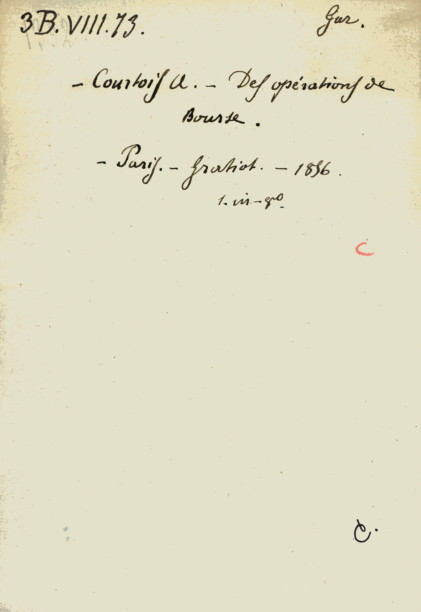 3B.VIII.73.
Gar.
- Courtois A. - Des opérations de
Bourse.
- Paris. - Gratiot. - 1856.
1. in-8º.
C
C.